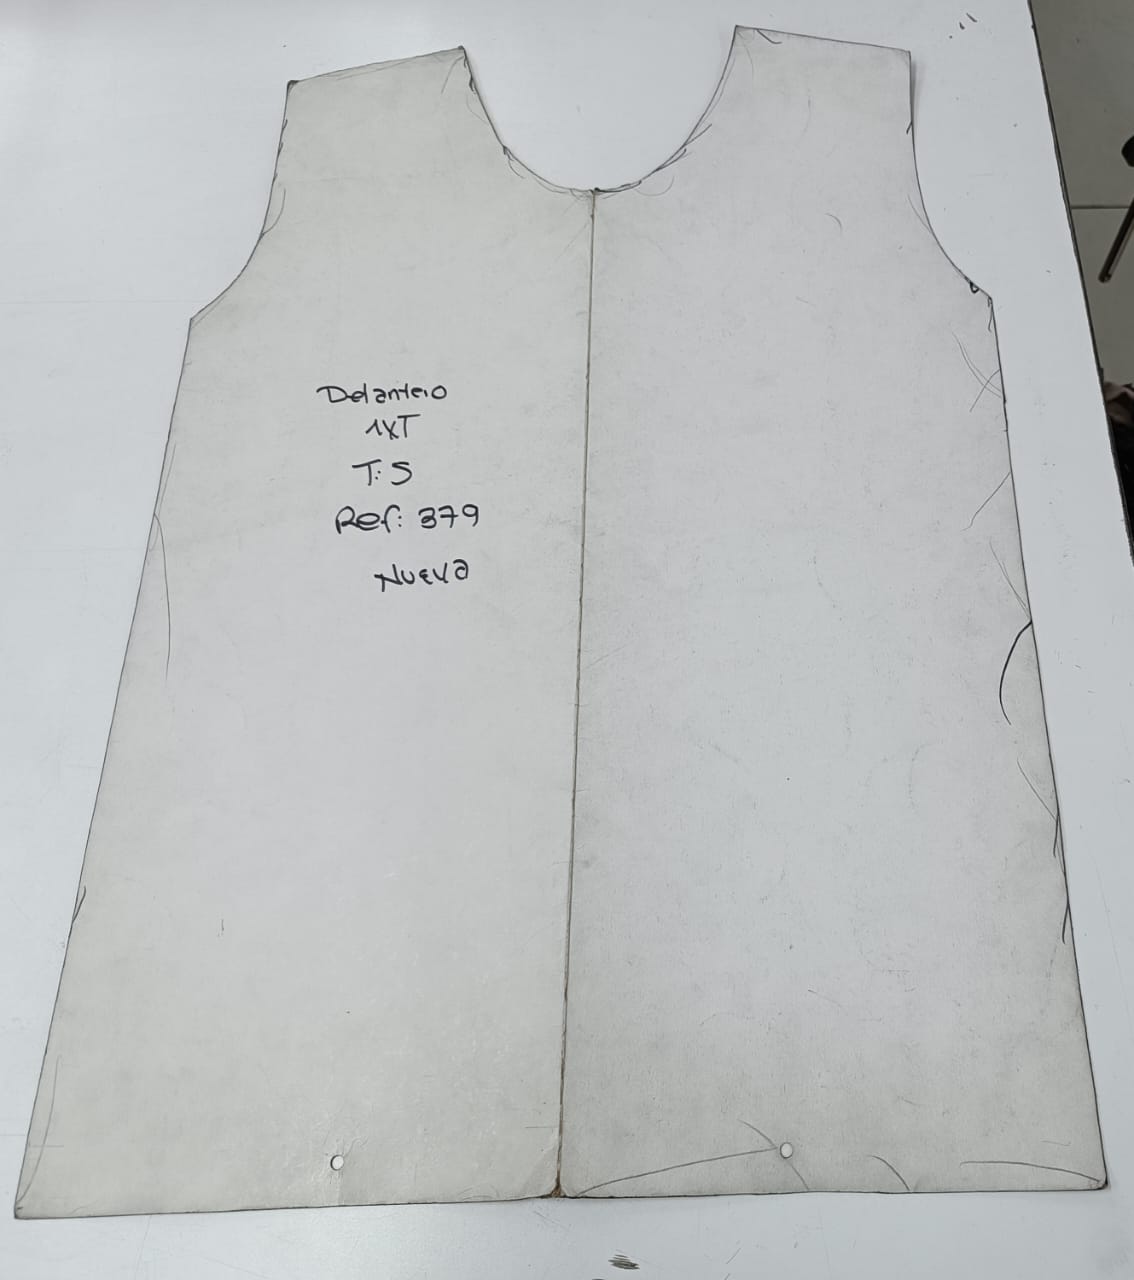 Delantero
1XT
T: S
Ref: 379
Nueva